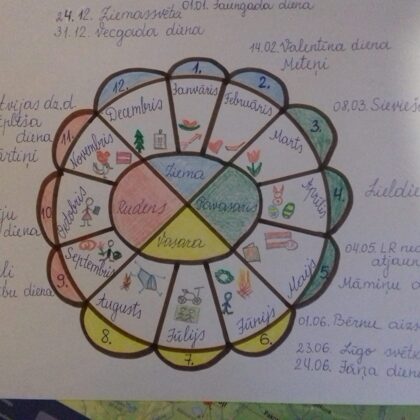 24.12. Ziemassvētki
31.12. Vecgada diena
01.01. Jaungada diena
14.02. Valentīna diena
Meteņi
08.03. Sievie
Lieldie
04.05. LR ne
atjaun
Māmiņu d
01.06. Bērnu aizs
23.06. Līgo svētk
24.06. Jāņa diena
tvijas dz.d.
plēša
diena
ārtiņi
ju
diena
bu diena
12.
Decembris
1.
Janvāris
2.
Februāris
3.
Marts
4.
Aprīlis
5.
Maijs
6.
Jūnijs
7.
Jūlijs
8.
Augusts
9.
Septembris
10.
Oktobris
11.
Novembris
Ziema
Pavasaris
Vasara
Rudens